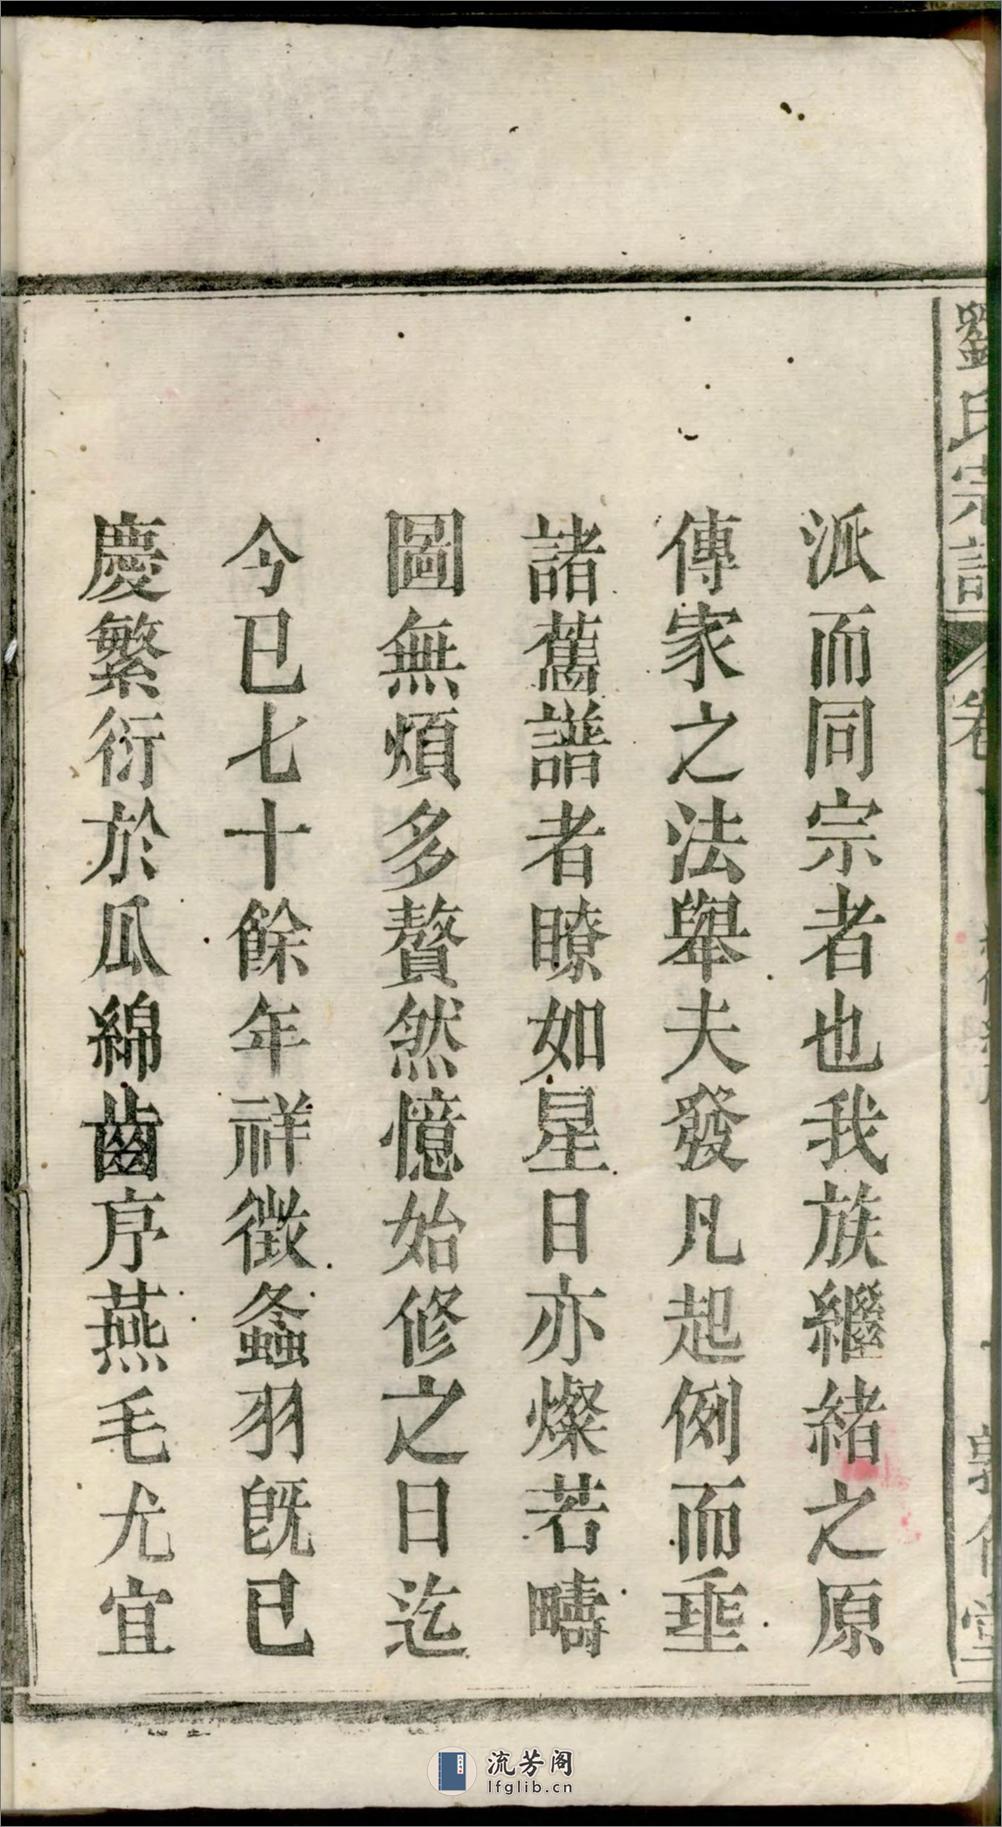 劉氏宗譜
卷
派而同宗者也我族繼緒之原
傳家之法舉夫發凡起例而垂
諸舊譜者瞭如星日亦燦若疇
圖無煩多贅然憶始修之日迄
今已七十餘年祥徵螽羽旣已
慶繁衍於瓜綿齒序燕毛尤宜
流芳阁
lfglib.cn